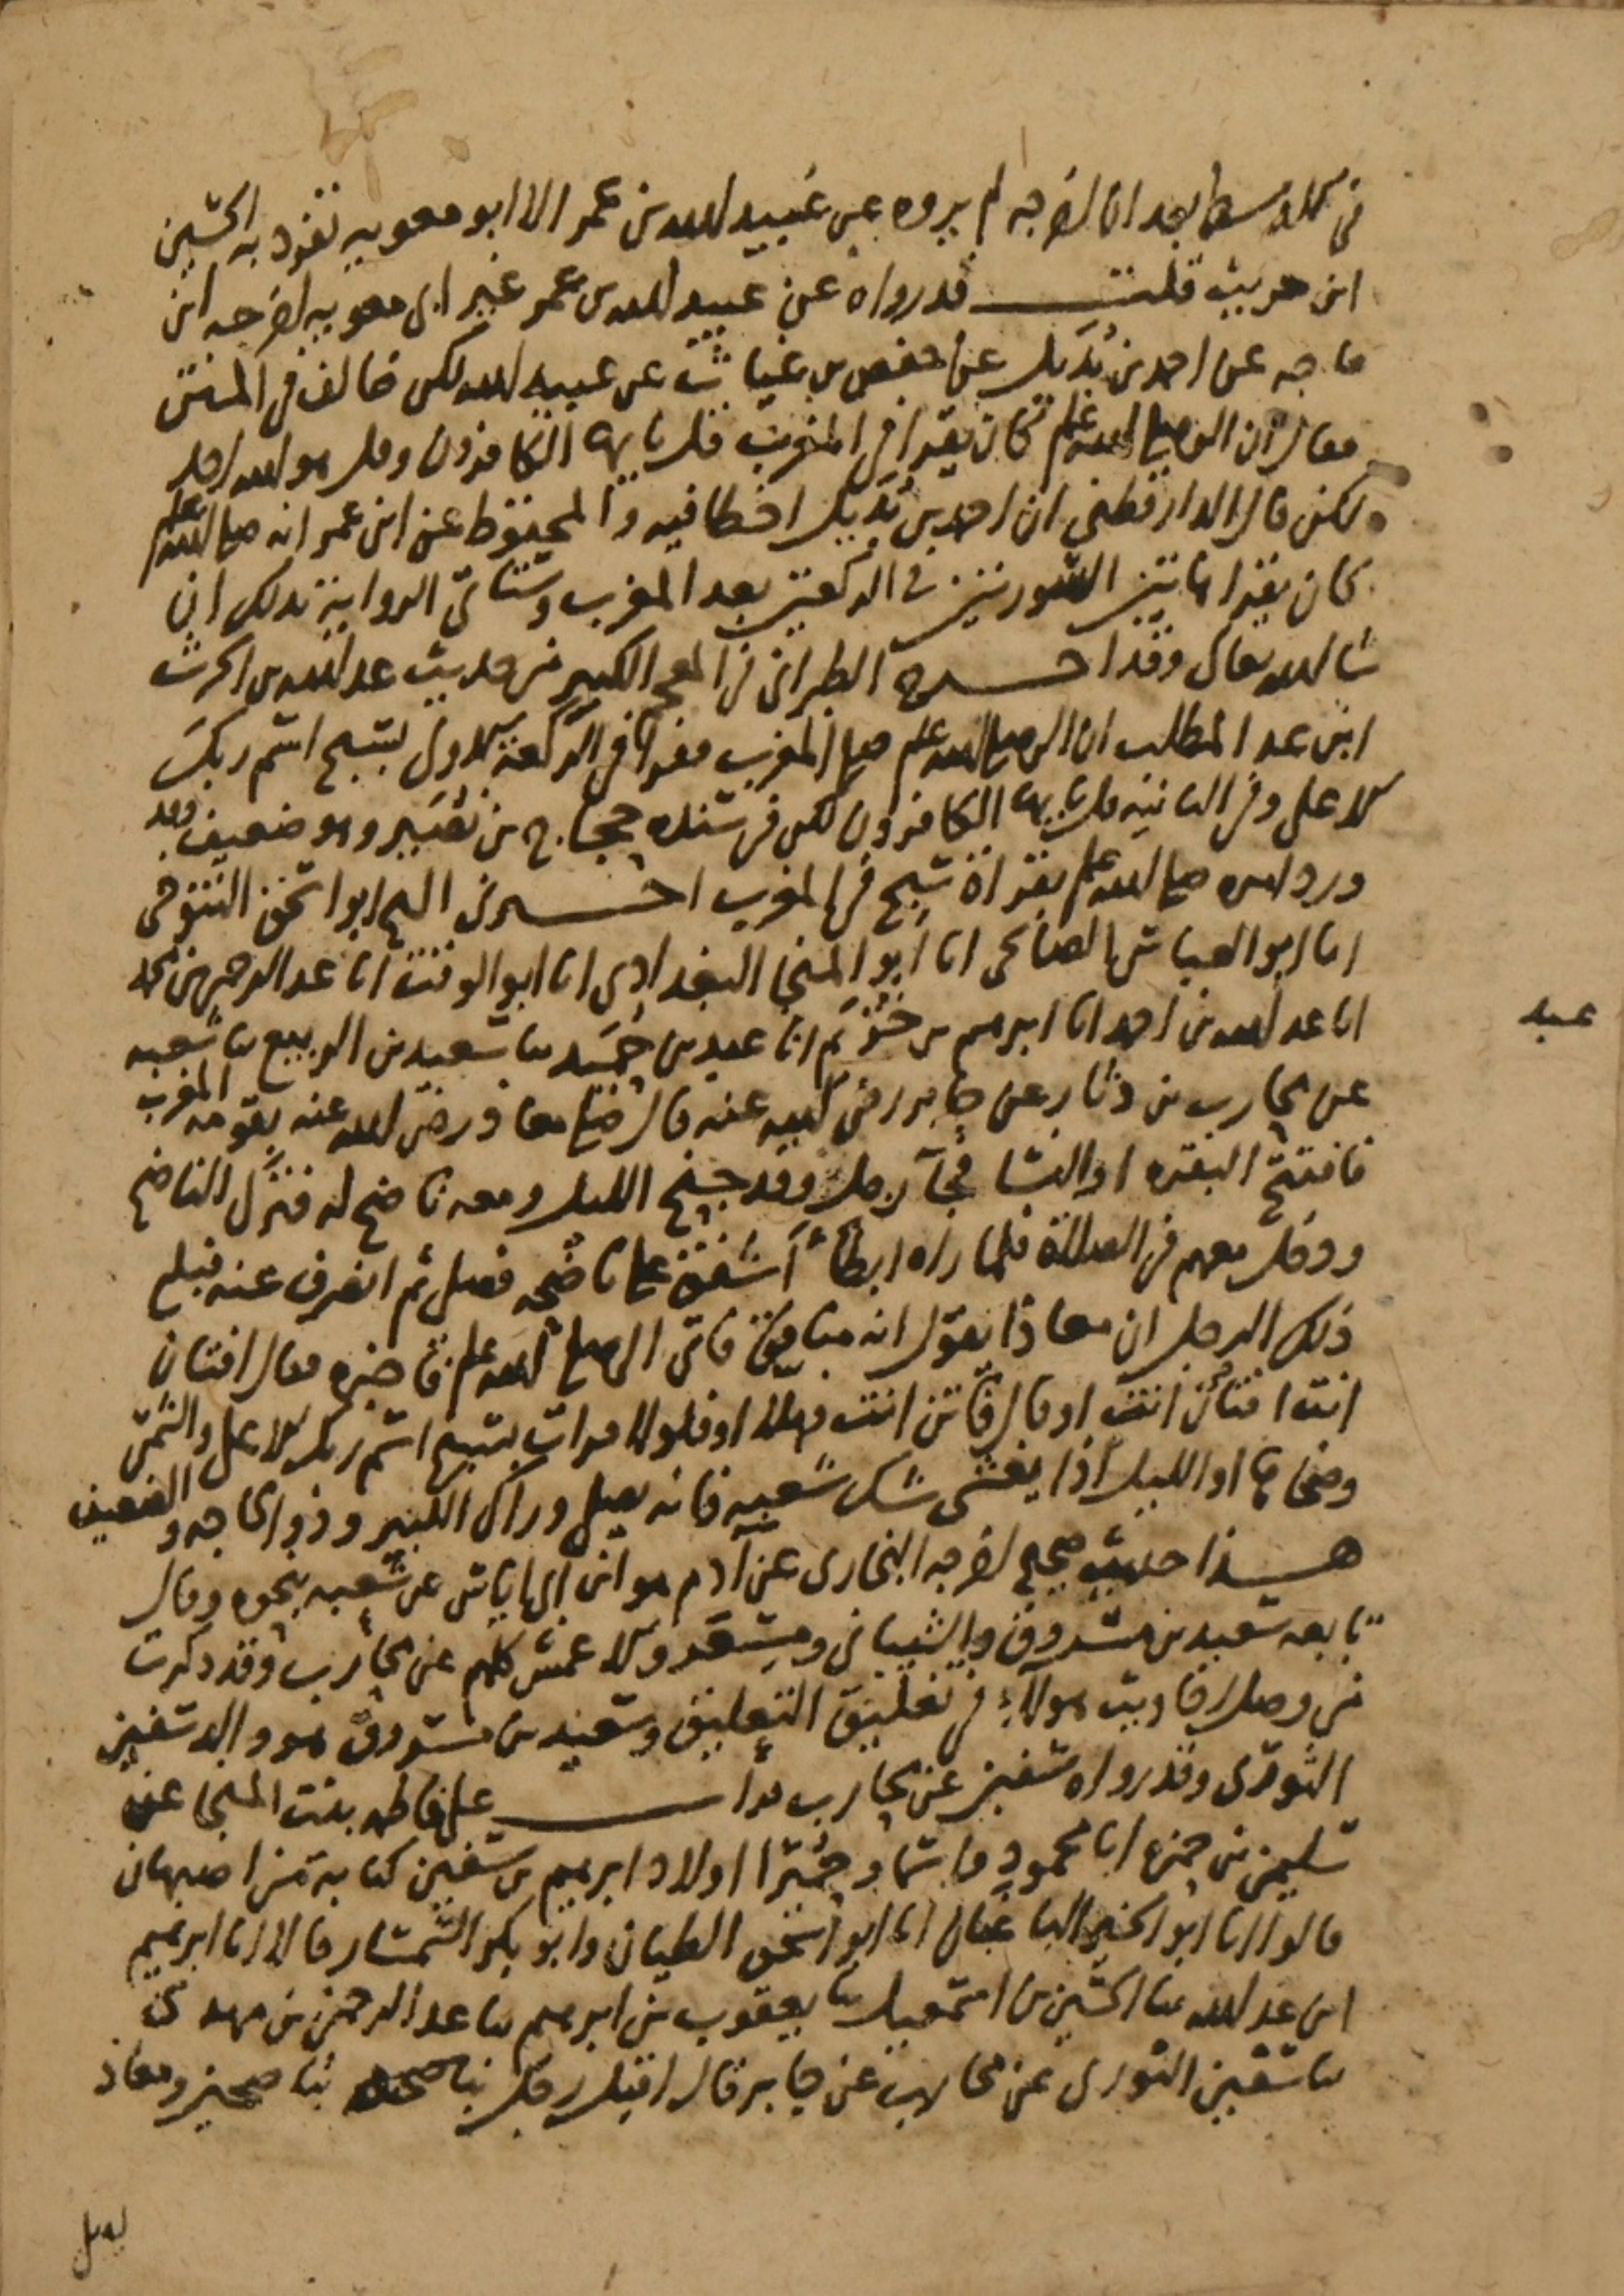 في الاوسط بعد ان اخرجه لم يروه عن عبيد الله بن عمر الا ابو معوية تفرد به الحسين
ابن حريث قلت قد رواه عن عبيد الله بن عمر غير ابى معوية اخرجه ابن
ماجه عن احمد بن بُدَيل عن حفص بن غياث عن عبيد الله لكن خالف في المتن
فقال ان النبي صلى الله علم كان يقرا في المغرب قل يايها الكافرون وقل هو الله احد
لكن قال الدارقطني ان احمد بن بُدَيل اخطا فيه والمحفوظ عن ابن عمر انه صلى الله علم
كان يقرا هاتين السورتين في الركعتين بعد المغرب وستاتي الرواية بذلك ان
شا الله تعالى وقد اخـــرج الطبراني في المعجم الكبير من حديث عبد الله بن الحرث
ابن عبد المطلب ان النبي صلى الله علم صلى المغرب فقرا في الركعة الاولى بسبح اسم ربك
الاعلى وفي الثانية قل يايها الكافرون لكن في سنده حجاج بن نُصَير وهو ضعيف وقد
ورد امره صلى الله علم بقراة سبح في المغرب اخـــبرني الشيخ ابو اسحق التنوخي
انا ابو العباس الصالحى انا ابو المنجا البغدادى انا ابو الوقت انا عبد الرحمن بن محمد
انا عبد الله بن احمد انا ابرهيم بن خُزَيم انا عبد بن حُمَيد ثنا سعيد بن الربيع ثنا شعبه
عن محارب بن دثار عن جابر رضى الله عنه قال صلى معاذ رضى الله عنه بقومه المغرب
فافتتح البقره او النسا فجآ رجل وقد جنح الليل ومعه ناضح له فترك الناضح
ودخل معهم في الصلاة فلما راه ابطأ أشفق على ناضحه فصلى ثم انصرف عنه فبلغ
ذلك الرجل ان معاذا يقول انه منافق فاتى النبي صلى الله علم فاخبره فقال افتان
انت افتان انت او قال فاتن انت فهلا او فلولا قرات بسبح اسم ربك الاعلى والشمس
وضحاها او الليل اذا يغشى شك شعبه فانه يصلي وراك الكبير وذو الحاجه والضعيف
هـــذا حديث صحيح اخرجه البخارى عن آدم هو ابن ابى اياس عن شعبه بنحوه وقال
تابعه سعيد بن مسروق والشيباني ومِسْعَر والاعمش كلهم عن محارب وقد ذكرت
من وصل احاديث هولاء في تغليق التعليق وسعيد بن مسروق هو والد سفين
الثورى وقد رواه سفين عن محارب قرات علي فاطمه بنت المنجا عن
سليمن بن حمزه انا محمود واسما وحُميرا اولاد ابرهيم بن سفين كتابة من اصبهان
قالوا انا ابو الخير الباغبان انا ابو اسحق الطيان وابو بكر السمسار قالا انا ابرهيم
ابن عبد الله ثنا الحسين بن اسمعيل ثنا يعقوب بن ابرهيم ثنا عبد الرحمن بن مهدى
ثنا سفين الثورى عن محارب عن جابر قال اقبل رجل بناضحين ومعاذ
عبد
يصلى